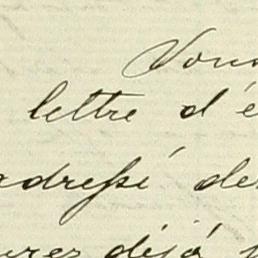 Vous
lettre d'é
adressé de
urez déjà